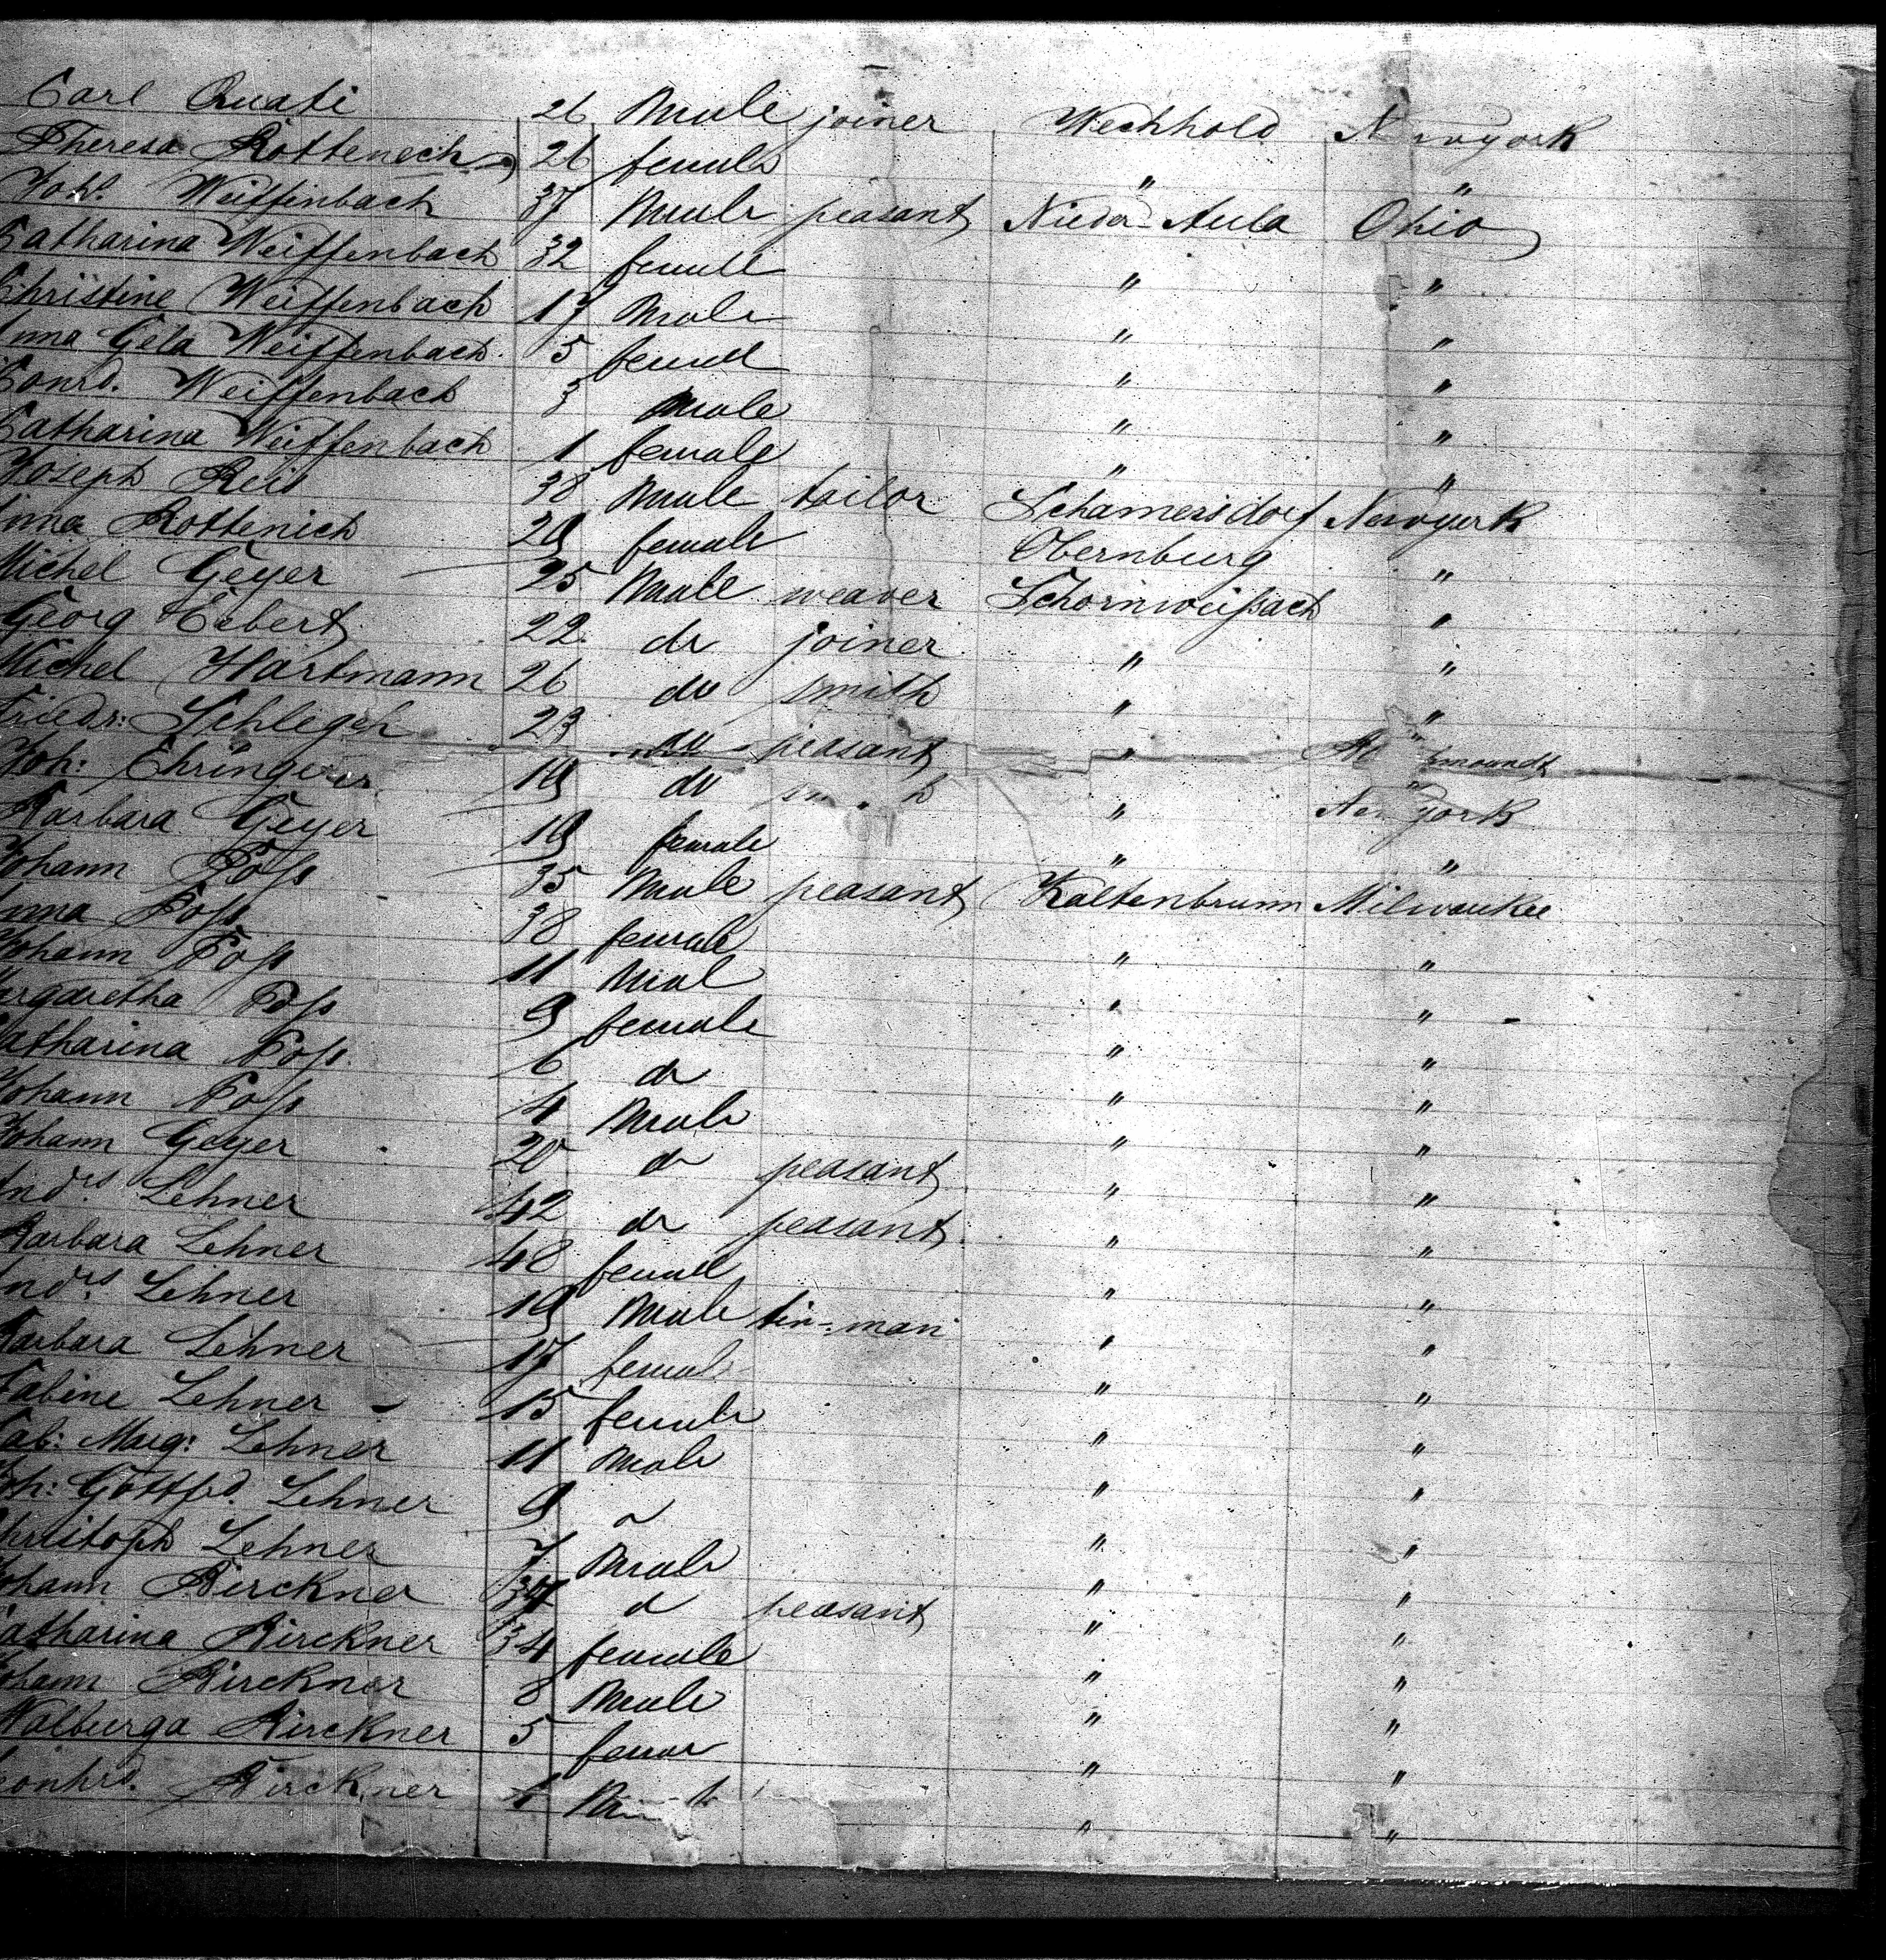 Carl Quati 26 Male joiner Wechhold Newyork
Theresa Rottenech 26 female " "
Joh.s Weiffenbach 37 Male peasant Nieder-Aula Ohio
Catharina Weiffenbach 32 female " "
Christine Weiffenbach 17 Male " "
Anna Gela Weiffenbach 5 female " "
Conrd. Weiffenbach 3 Male " "
Catharina Weiffenbach 1 female " "
Joseph 38 Male tailor Schamersdorf Newyork
Anna Rottenich 20 female Obernburg "
Michel Geyer 25 Male weaver Schornweißach "
Georg Eckert 22 do joiner " "
Michel Hartmann 26 do smith " "
Friedr: Schlegel 23 do peasant "
Joh: Ehringer 19 do " New york
Barbara Geyer 19 female " "
Johann Poß 35 Male peasant Kaltenbrunn Milwaukee
Anna Poß 38 female " "
Johann Poß 11 Mal " "
Margaretha Poß 9 female " "
Catharina Poß 6 do " "
Johann Poß 4 Male " "
Johann Geyer 20 do peasant " "
Andrs Lehner 42 do peasant " "
Barbara Lehner 48 female " "
Andrs. Lehner 19 Male tin-man " "
Barbara Lehner 17 female " "
Sabine Lehner 15 female " "
Cab: Marg: Lehner 11 Male " "
Joh: Gottfd. Lehner 9 " "
Christoph Lehner 7 Male " "
Johann Kirckner 34 d peasant " "
Catharina Kirckner 34 female " "
Johann Kirckner 8 Male " "
Walburga Kirckner 5 femar " "
Leonhrd. Kirckner " "